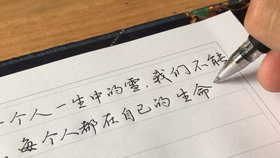 一个人一生中的雪，我们不能
每个人都在自己的生命